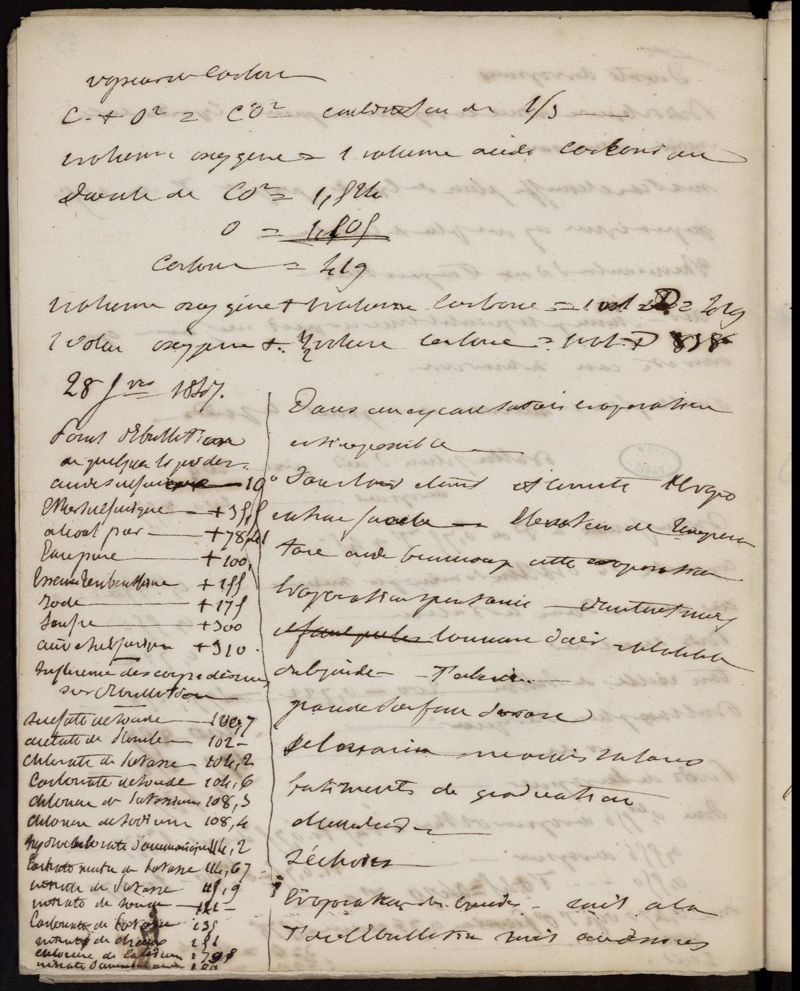 vapeur de Carbone
C + O² = CO² condensation de 1/3
1 volume oxygène = 1 volume acide carbonique
Densité de CO² = 1,524
O = 1,105
Carbone = 419
1 volume oxygène + 1 volume Carbone = 1 vol D = 419
1 volume oxygène + 1/2 volume carbone = 1 vol D 838
28 1847.
Point d'Ebullition
de quelques liquides.
acide sulfureux — 10°
Ether sulfurique — +35,5
alcool pur — +78,41
Eau pure — +100
Essence Terebenthine +155
Iode — +175
Soufre — +300
acide sulfurique +310
Influence des corps dissous
sur l'Ebullition
sulfate de soude — 100,7
acetate de Plomb — 102
chlorate de Potasse 104,2
Carbonate de soude 104,6
chlorure de Potassium 108,3
chlorure de sodium 108,4
hydrochlorate d'ammoniaque 114,2
tartrate neutre de Potasse 114,67
nitrate de Potasse 115,9
nitrate de soude 121
Carbonate de Potasse 135
nitrate de chaux 151
chlorure de Calcium 179,5
nitrate d'ammoniaque 180
Dans un espace saturé évaporation
est impossible
Dans
Elevation de tempera
ture aide beaucoup cette evaporation
Evaporation spontanée
courant d'air
du liquide
grande surface
marais salans
batiments de graduation
Séchoirs
Evaporation des liquides — soit à la
T de l'Ebullition soit au dessous